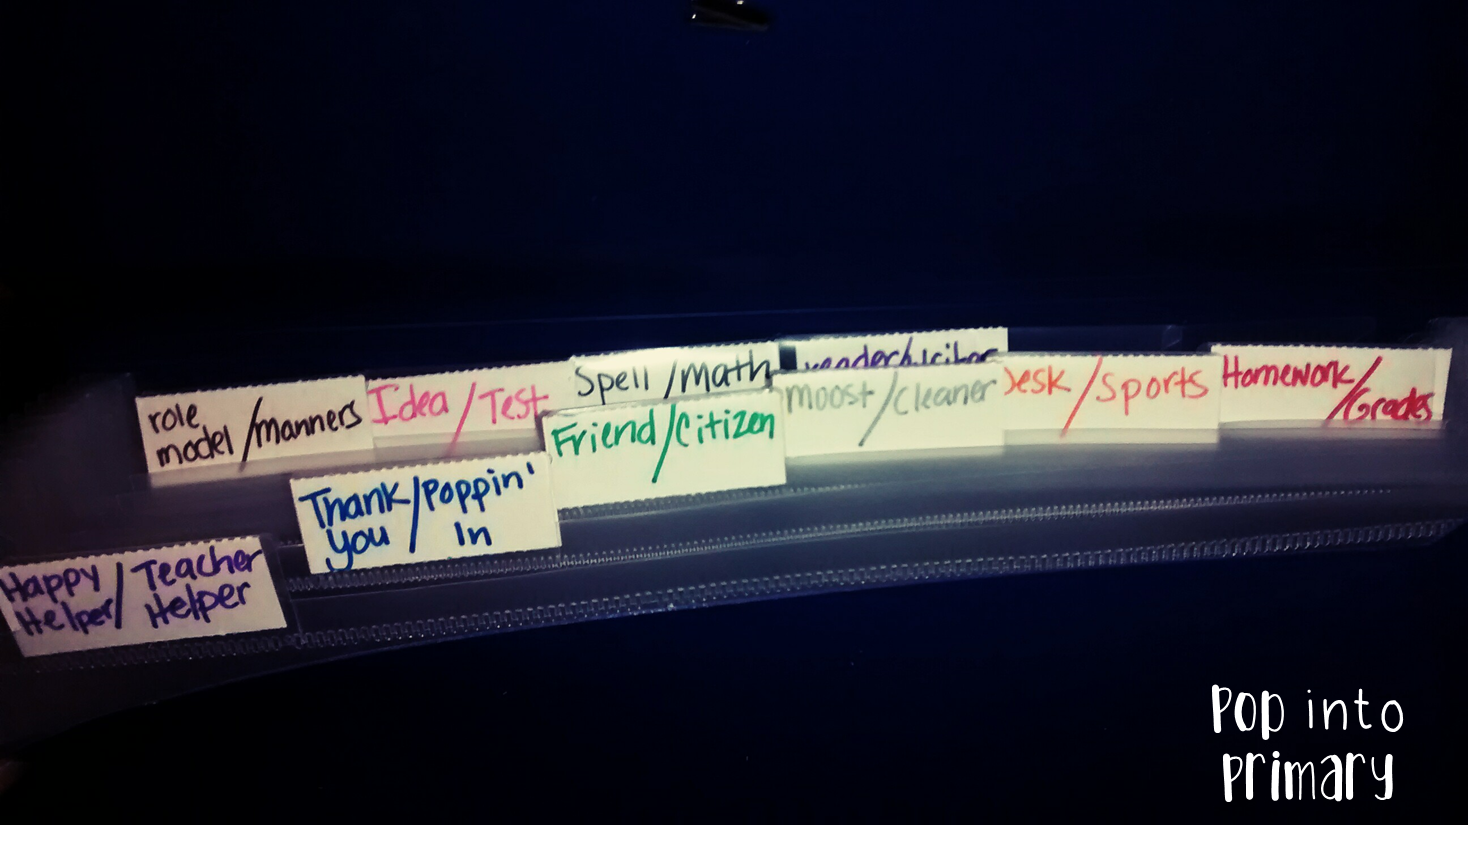 role
model/manners
Idea/Test
Spell/Math
moost/cleaner
Desk/Sports
Homework/
Grades
Friend/Citizen
Thank/Poppin'
you/In
Happy/Teacher
Helper/Helper
Pop into
primary